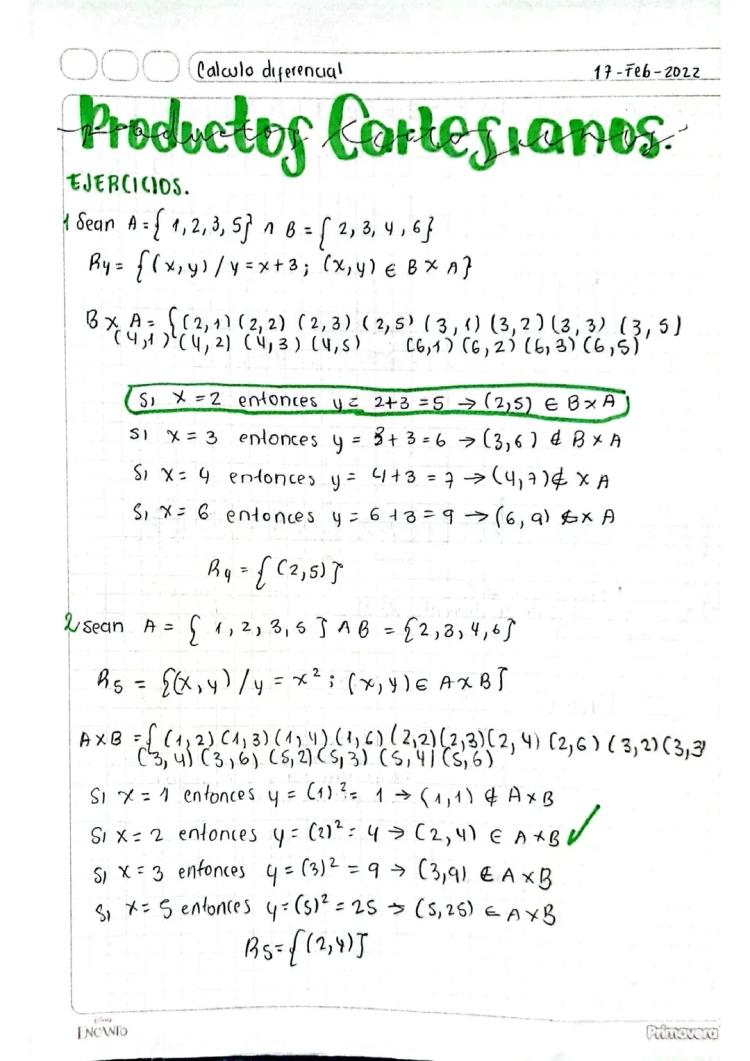 Calculo diferencial 17-Feb-2022
Productos Cartesianos.
EJERCICIOS.
1 Sean A={ 1,2,3,5} ∧ B={ 2,3,4,6}
R4= {(x,y) / y=x+3; (x,y) ∈ B x A}
B x A= {(2,1)(2,2) (2,3) (2,5) (3,1) (3,2) (3,3) (3,5)
(4,1) (4,2) (4,3) (4,5) (6,1) (6,2) (6,3) (6,5)
Si x=2 entonces y= 2+3=5 → (2,5) ∈ B x A
Si x=3 entonces y= 3+3=6 → (3,6) ∉ B x A
Si x=4 entonces y= 4+3=7 → (4,7) ∉ x A
Si x=6 entonces y=6+3=9 → (6,9) ∉ x A
R4={(2,5)}
2 Sean A={ 1,2,3,5 } ∧ B ={2,3,4,6}
R5 = {(x,y) / y=x²; (x,y) ∈ A x B}
A x B ={ (1,2) (1,3) (1,4) (1,6) (2,2) (2,3) (2,4) (2,6) (3,2) (3,3
(3,4) (3,6) (5,2) (5,3) (5,4) (5,6)
Si x=1 entonces y=(1)²= 1 → (1,1) ∉ A x B
Si x=2 entonces y=(2)²= 4 → (2,4) ∈ A x B ✓
Si x=3 entonces y=(3)² = 9 → (3,9) ∉ A x B
Si x=5 entonces y=(5)² = 25 → (5,25) ∈ A x B
R5={(2,4)}
Disney
ENCANTO Primavera